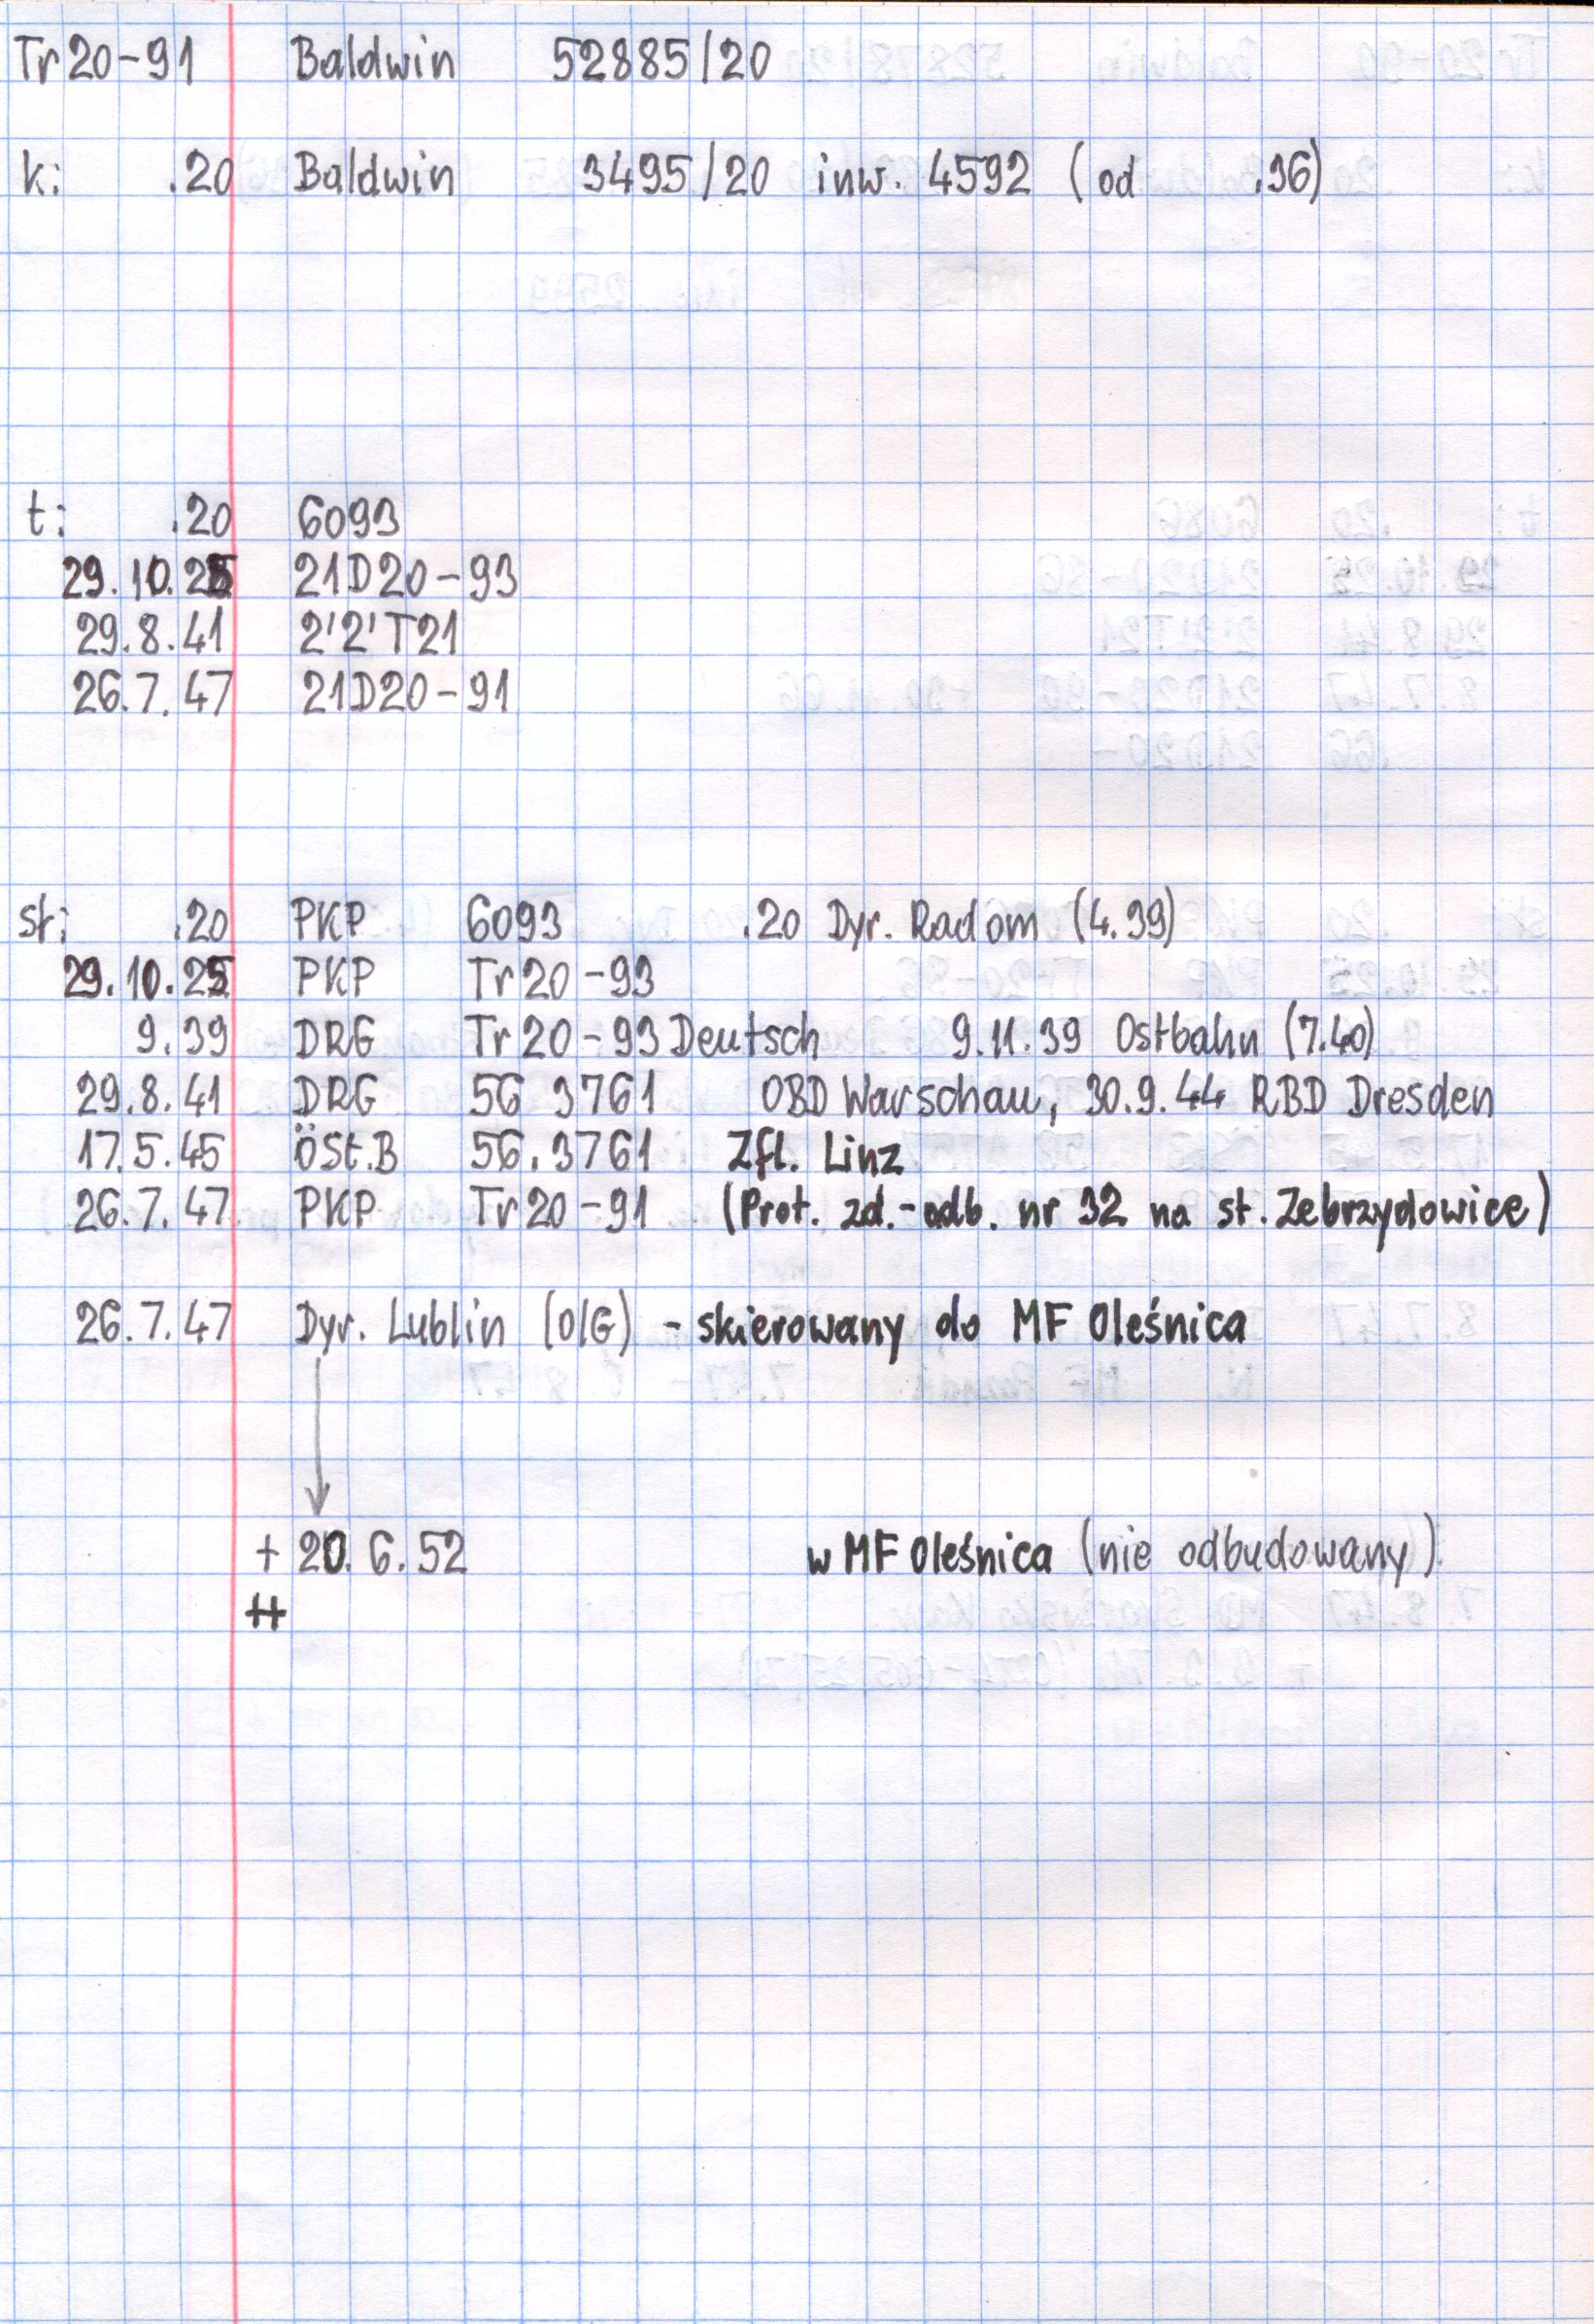 Tr20-91 Baldwin 52885/20
k: .20 Baldwin 3495/20 inw. 4592 (od .36)
t: .20 6093
29.10.25 21D20-93
29.8.41 2'2'T21
26.7.47 21D20-91
st: .20 PKP 6093 .20 Dyr. Radom (4.39)
29.10.25 PKP Tr20-93
9.39 DRG Tr20-93 Deutsch 9.11.39 Ostbahn (7.40)
29.8.41 DRG 56 3761 OBD Warschau, 30.9.44 RBD Dresden
17.5.45 ÖSt.B 56.3761 Zfl. Linz
26.7.47 PKP Tr20-91 (Prot. zd.-odb. nr 32 na st. Zebrzydowice)
26.7.47 Dyr. Lublin (OIG) - skierowany do MF Oleśnica
+ 20.6.52 w MF Oleśnica (nie odbudowany)
++